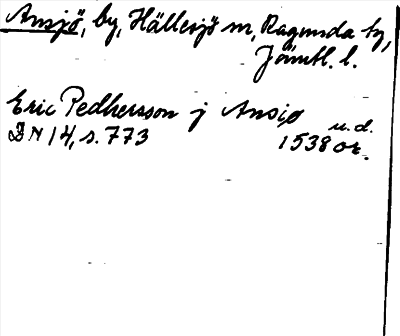 Ansjö, by, Hällesjö sn, Ragunda tg,
Jämtl. l.
Eric Pedhersson j Ansiø
u.d.
DN 14, s. 773 1538 or.